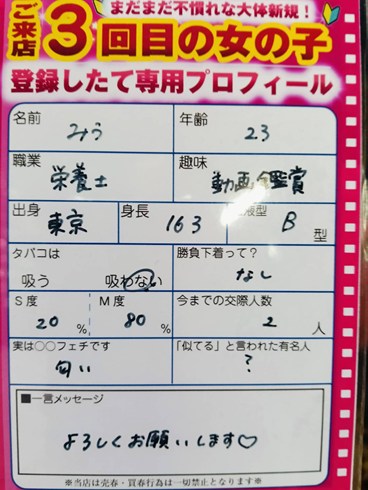 ご来店
まだまだ不慣れな大体新規!
3回目の女の子
登録したて専用プロフィール
名前 みう
年齢 23
職業 栄養士
趣味 動画鑑賞
出身 東京
身長 163
液型 B 型
タバコは
吸う 吸わない
勝負下着って?
なし
S度 20 %
M度 80 %
今までの交際人数
2 人
実は○○フェチです
匂い
「似てる」と言われた有名人
?
■一言メッセージ
よろしくお願いします♡
※当店は売春・買春行為は一切禁止となります※